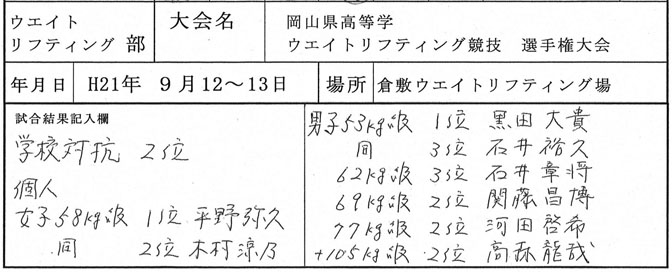 ウエイト
リフティング 部
大会名
岡山県高等学
ウエイトリフティング競技 選手権大会
年月日
H21年 9月12～13日
場所
倉敷ウエイトリフティング場
試合結果記入欄
学校対抗 2位
個人
女子58kg級 1位 平野弥久
同 2位 木村涼乃
男子53kg級 1位 黒田大貴
同 3位 石井裕久
62kg級 3位 石井章将
69kg級 2位 関藤昌博
77kg級 2位 河田啓希
+105kg級 2位 高森龍哉